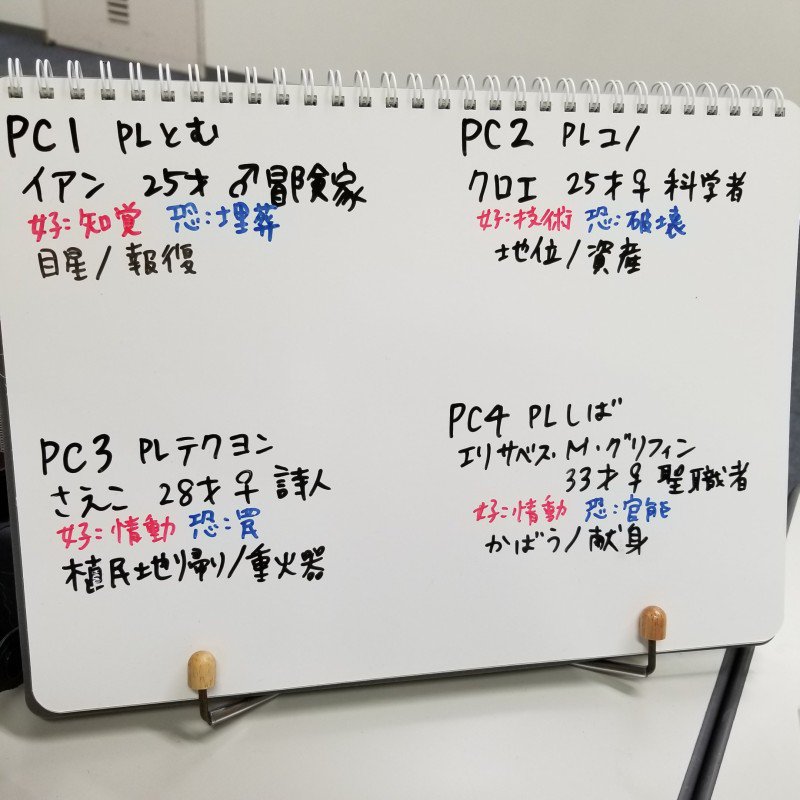 PC1 PLとむ
イアン 25才 ♂ 冒険家
好:知覚 恐:埋葬
目星/報復
PC2 PLユノ
クロエ 25才 ♀ 科学者
好:技術 恐:破壊
地位/資産
PC3 PLテクヨン
さえこ 28才 ♀ 詩人
好:情動 恐:罠
植民地帰り/重火器
PC4 PLしば
エリザベス・M・グリフィン
33才 ♀ 聖職者
好:情動 恐:官能
かばう/献身